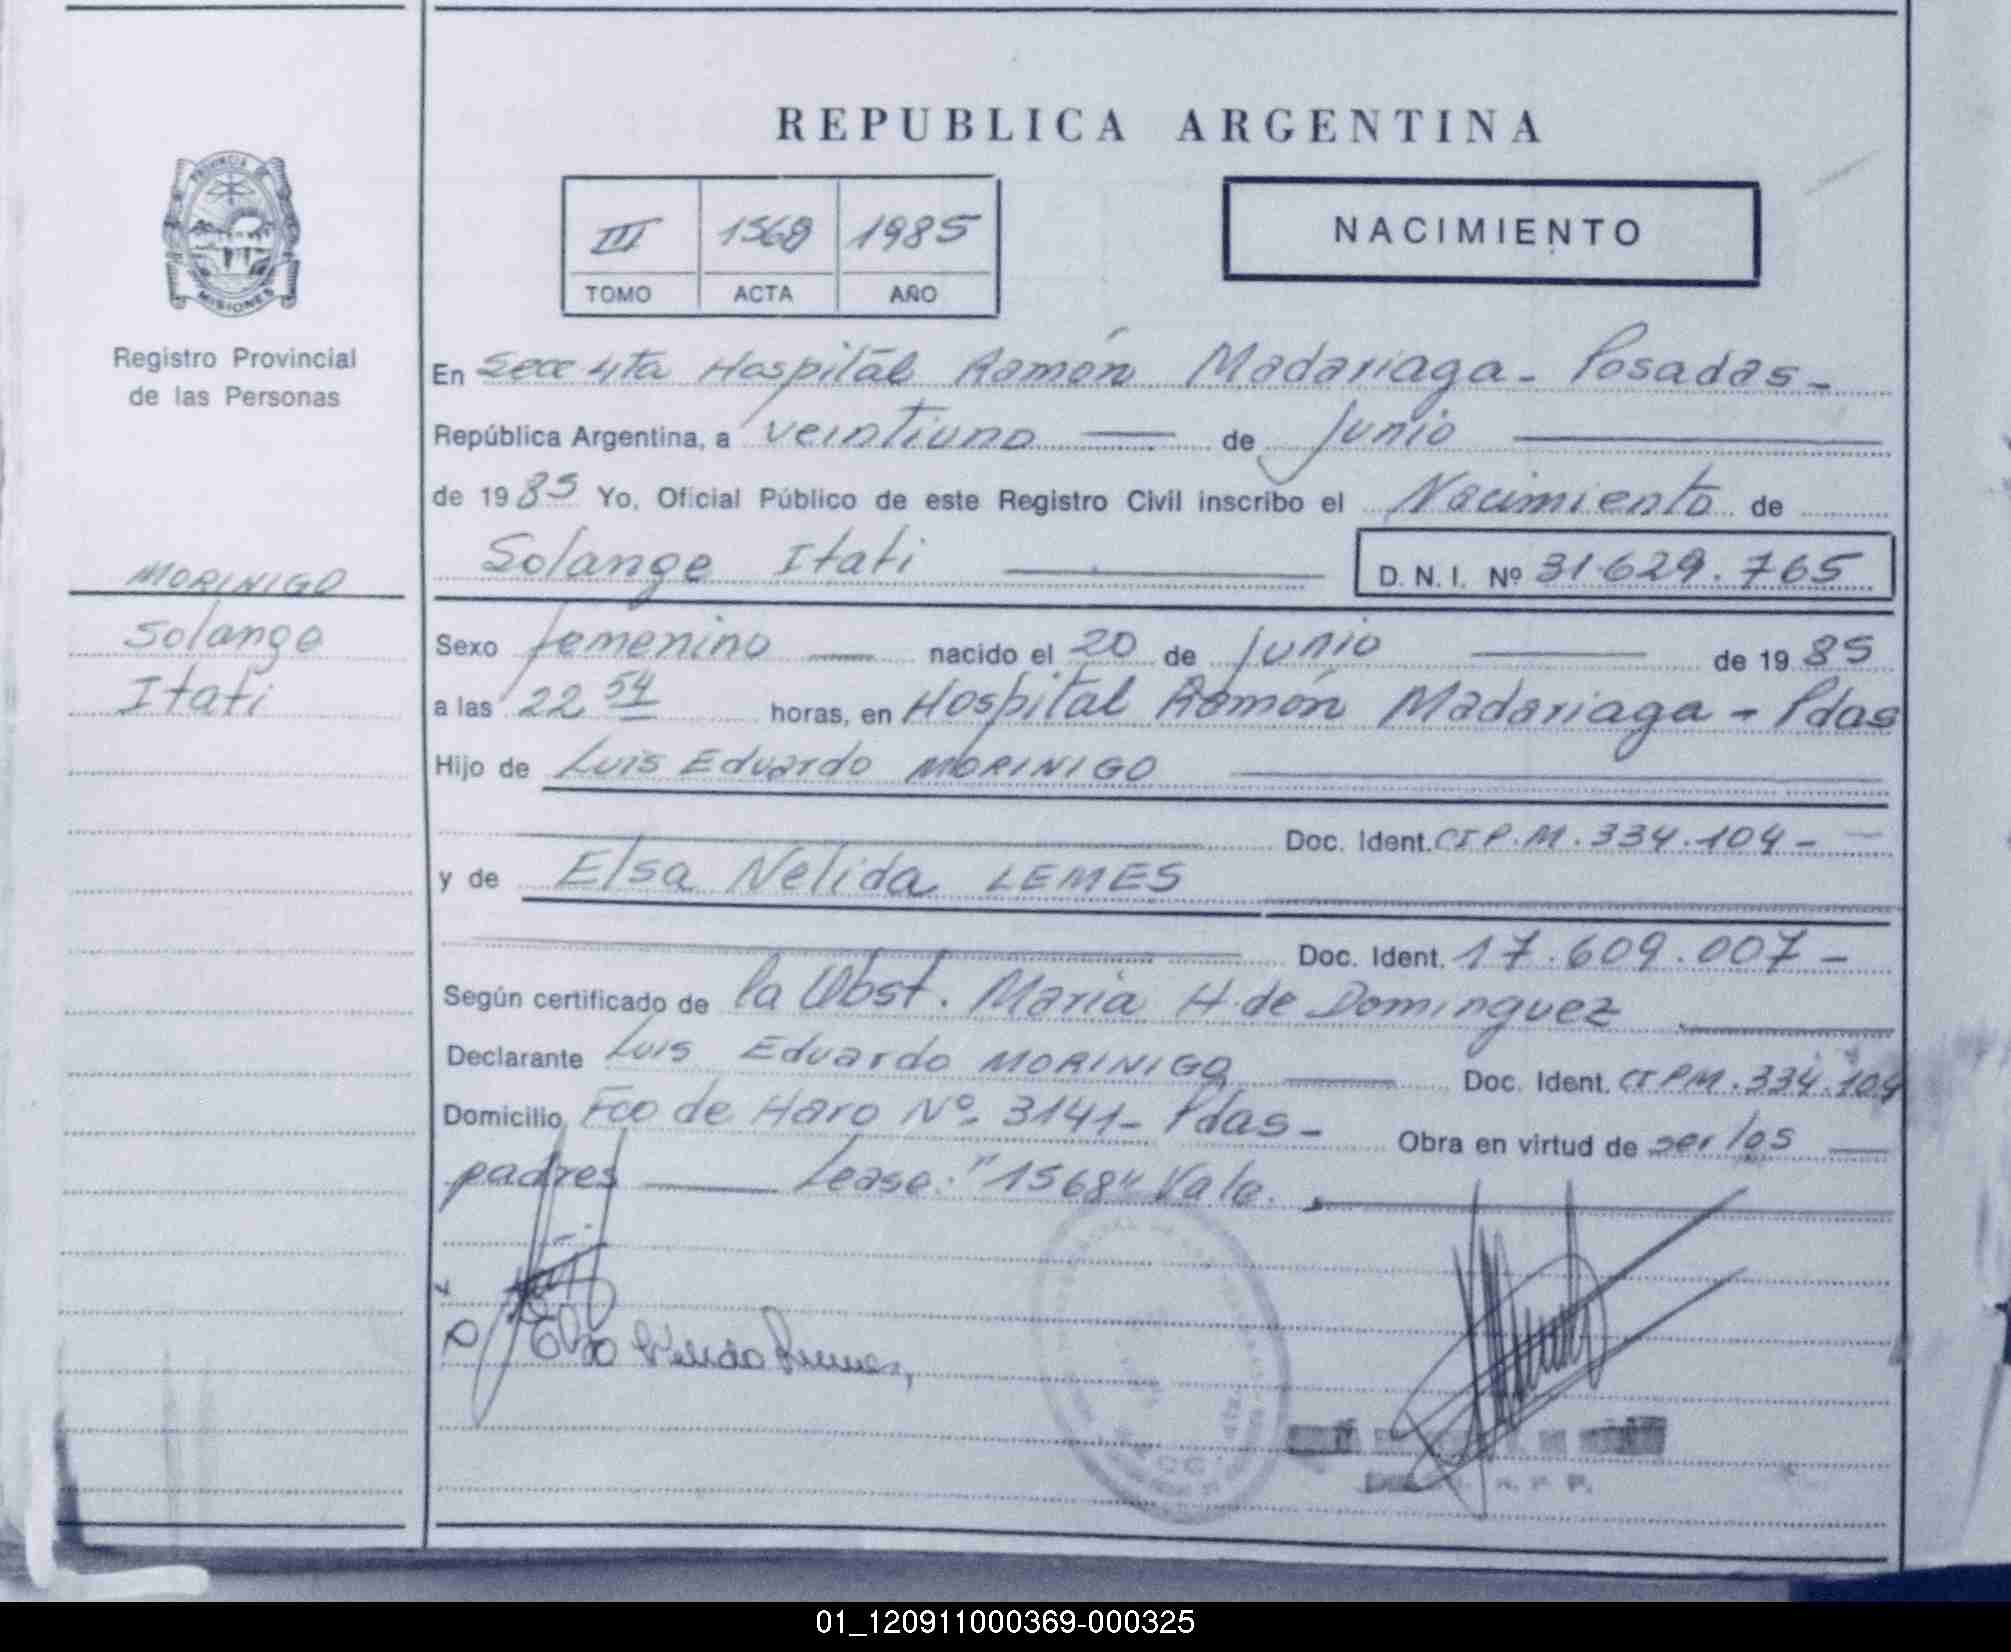 REPUBLICA ARGENTINA
PROVINCIA
MISIONES
III 1568 1985
TOMO ACTA AÑO
NACIMIENTO
Registro Provincial
de las Personas
En Secc 4ta Hospital Ramón Madariaga - Posadas -
República Argentina, a veintiuno de Junio
de 1985 Yo, Oficial Público de este Registro Civil inscribo el Nacimiento de
Solange Itati D. N. I. Nº 31.629.765
MORINIGO
Solange
Itati
Sexo femenino nacido el 20 de Junio de 1985
a las 22 54 horas, en Hospital Ramón Madariaga - Pdas
Hijo de Luis Eduardo MORINIGO
Doc. Ident. CIP.M. 334.104 -
y de Elsa Nelida LEMES
Doc. Ident. 17.609.007 -
Según certificado de la Obst. Maria H. de Dominguez
Declarante Luis Eduardo MORINIGO Doc. Ident. CIPM. 334.104
Domicilio Fco de Haro Nº 3141 - Pdas - Obra en virtud de ser los
padres Lease: "1568" Vale.
01_120911000369-000325